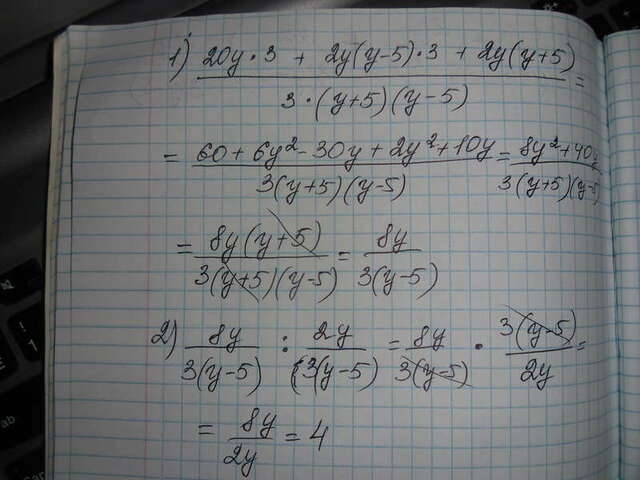 1) (20y·3 + 2y(y-5)·3 + 2y(y+5)) / (3·(y+5)(y-5)) =
= (60 + 6y² - 30y + 2y² + 10y) / (3(y+5)(y-5)) = (8y² + 40y) / (3(y+5)(y-5))
= (8y(y+5)) / (3(y+5)(y-5)) = 8y / (3(y-5))
2) 8y / (3(y-5)) : 2y / (3(y-5)) = 8y / (3(y-5)) · (3(y-5)) / 2y =
= 8y / 2y = 4